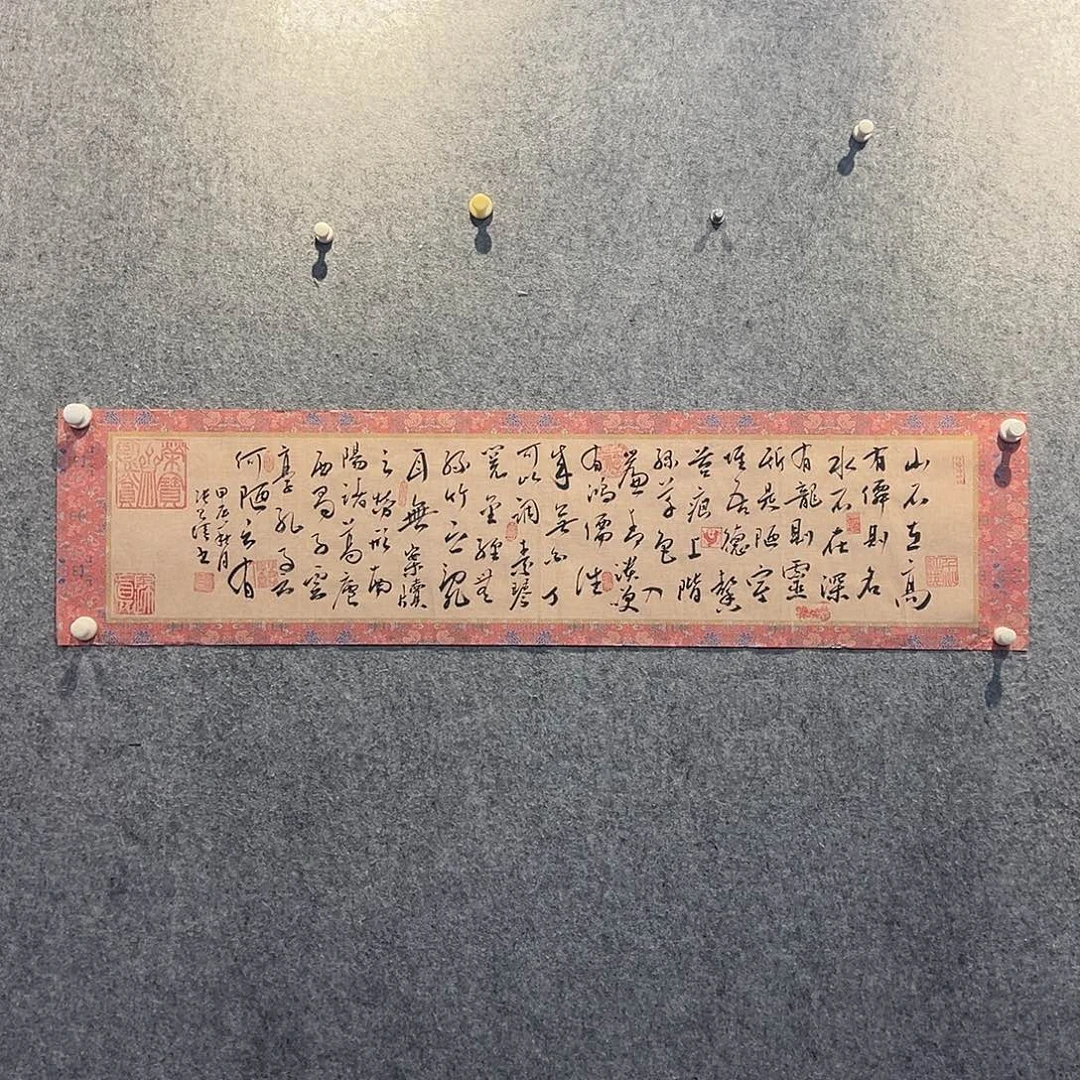 山不在高
有僊則名
水不在深
有龍則靈
斯是陋室
惟吾德馨
苔痕上階
綠草色入
簾青談笑
有鴻儒往
来無白丁
可以調素琴
閱金經無
絲竹之亂
耳無案牘
之勞形南
陽諸葛廬
西蜀子雲
亭孔子云
何陋之有
甲辰秋月
書